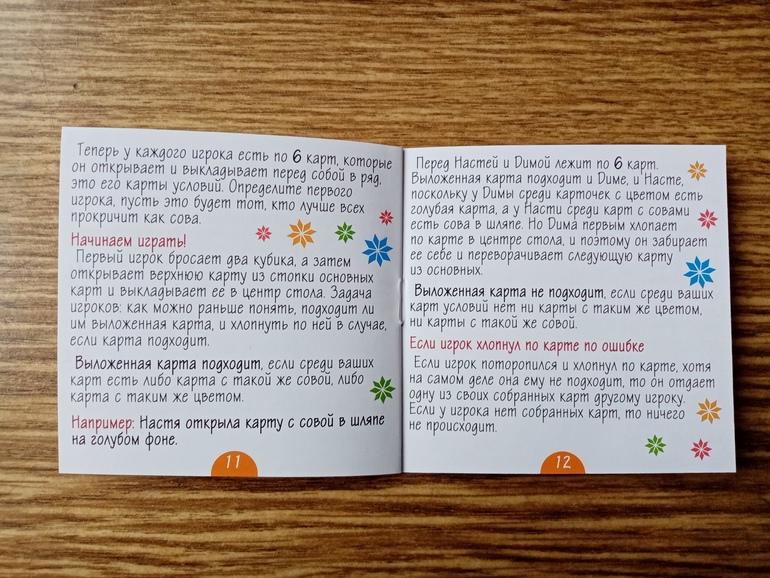 Теперь у каждого игрока есть по 6 карт, которые
он открывает и выкладывает перед собой в ряд,
это его карты условий. Определите первого
игрока, пусть это будет тот, кто лучше всех
прокричит как сова.
Начинаем играть!
Первый игрок бросает два кубика, а затем
открывает верхнюю карту из стопки основных
карт и выкладывает её в центр стола. Задача
игроков: как можно раньше понять, подходит ли
им выложенная карта, и хлопнуть по ней в случае,
если карта подходит.
Выложенная карта подходит, если среди ваших
карт есть либо карта с такой же совой, либо
карта с таким же цветом.
Например: Настя открыла карту с совой в шляпе
на голубом фоне.
11
Перед Настей и Димой лежит по 6 карт.
Выложенная карта подходит и Диме, и Насте,
поскольку у Димы среди карточек с цветом есть
голубая карта, а у Насти среди карт с совами
есть сова в шляпе. Но Дима первым хлопает
по карте в центре стола, и поэтому он забирает
ее себе и переворачивает следующую карту
из основных.
Выложенная карта не подходит, если среди ваших
карт условий нет ни карты с таким же цветом,
ни карты с такой же совой.
Если игрок хлопнул по карте по ошибке
Если игрок поторопился и хлопнул по карте, хотя
на самом деле она ему не подходит, то он отдает
одну из своих собранных карт другому игроку.
Если у игрока нет собранных карт, то ничего
не происходит.
12